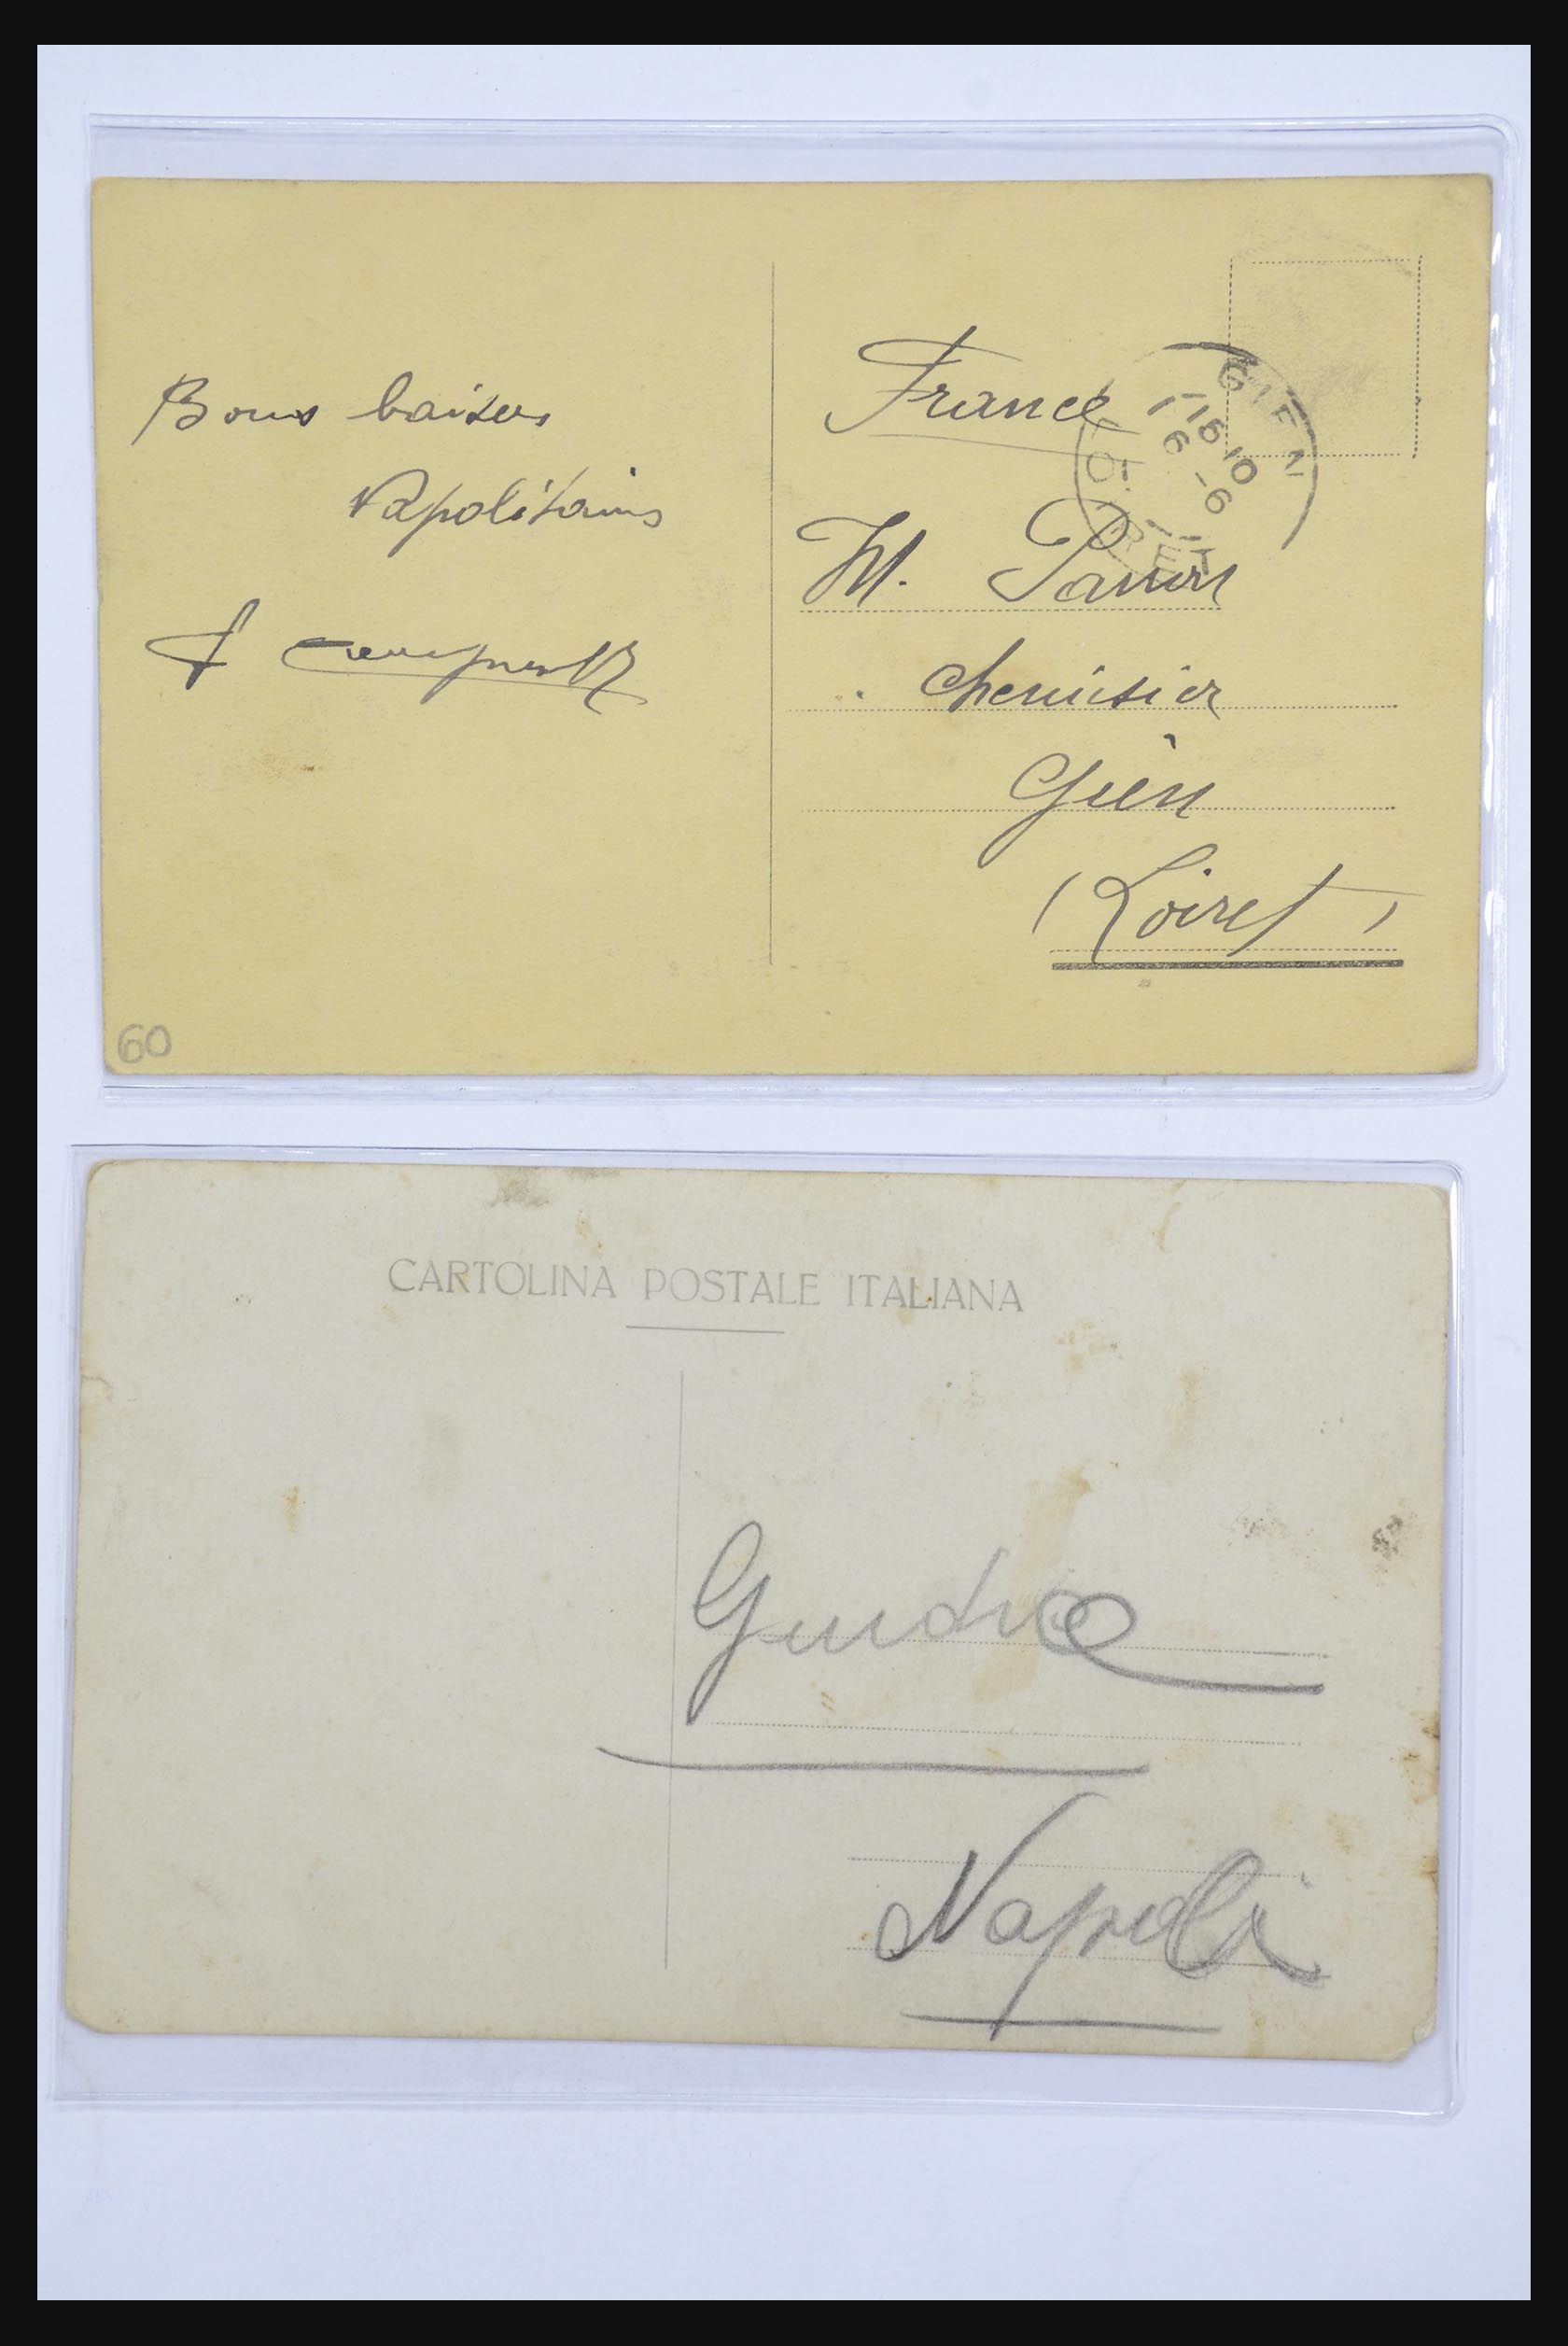 Bons baisers
Napolitains
France
M. Panon
Chemisier
Gien
(Loiret)
GIEN
16 10
6 -6
LOIRET
60
CARTOLINA POSTALE ITALIANA
Napoli